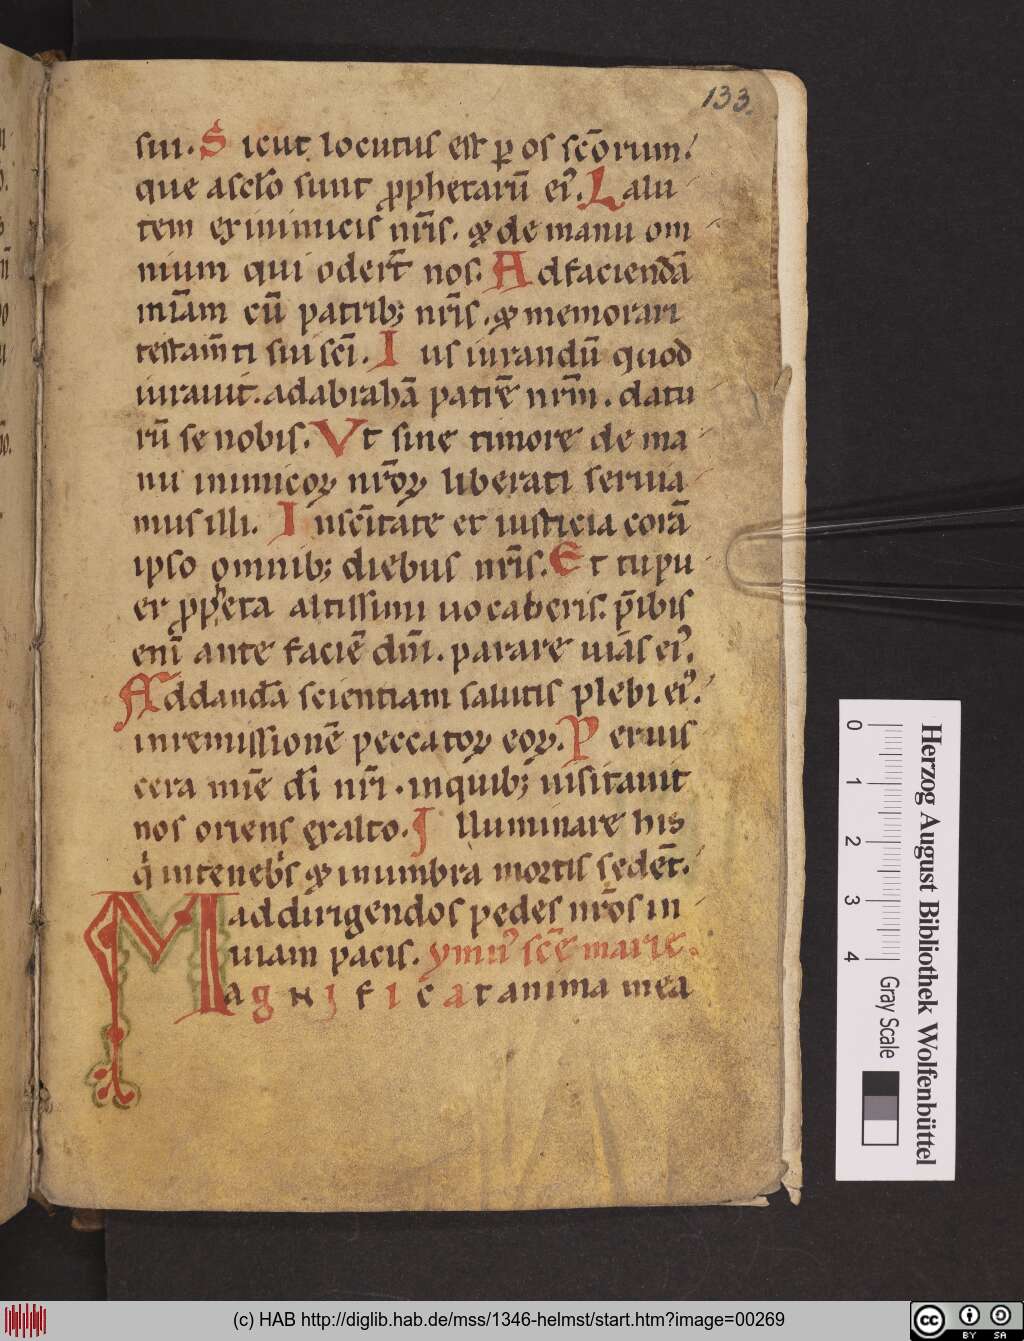 133.
sui. Sicut locutus est ꝑ os sc̄orum.
que a scło sunt ꝓphetarū ei⁹. Lalu
tem ex inimicis nr̄is. ⁊ de manu om
nium qui oder̄t nos. Ad faciendā
mīam cū patrib; nr̄is. ⁊ memorari
testam̄ti sui scī. Ius iurandū quod
iurauit. ad abrahā patrē nr̄m. datu
rū se nobis. Vt sine timore de ma
nu inimicoꝝ nr̄oꝝ liberati seruia
mus illi. In sc̄itate et iusticia corā
ipso omnib; diebus nr̄is. Et tu pu
er ꝓpheta altissimi uocaberis. p̄ibis
enī ante faciē dn̄i. parare uias ei⁹.
Ad dandā scientiam salutis plebi ei⁹.
in remissionē peccatoꝝ eoꝝ. Per uis
cera mīe dī nr̄i. in quib; uisitauit
nos oriens ex alto. Illuminare his
qͥ in tenebͥs ⁊ in umbra mortis sedēt.
ad dirigendos pedes nr̄os in
uiam pacis. ymn⁹ sc̄e marie.
Magnificat anima mea
0 1 2 3 4
Gray Scale
Herzog August Bibliothek Wolfenbüttel
(c) HAB http://diglib.hab.de/mss/1346-helmst/start.htm?image=00269
cc BY SA